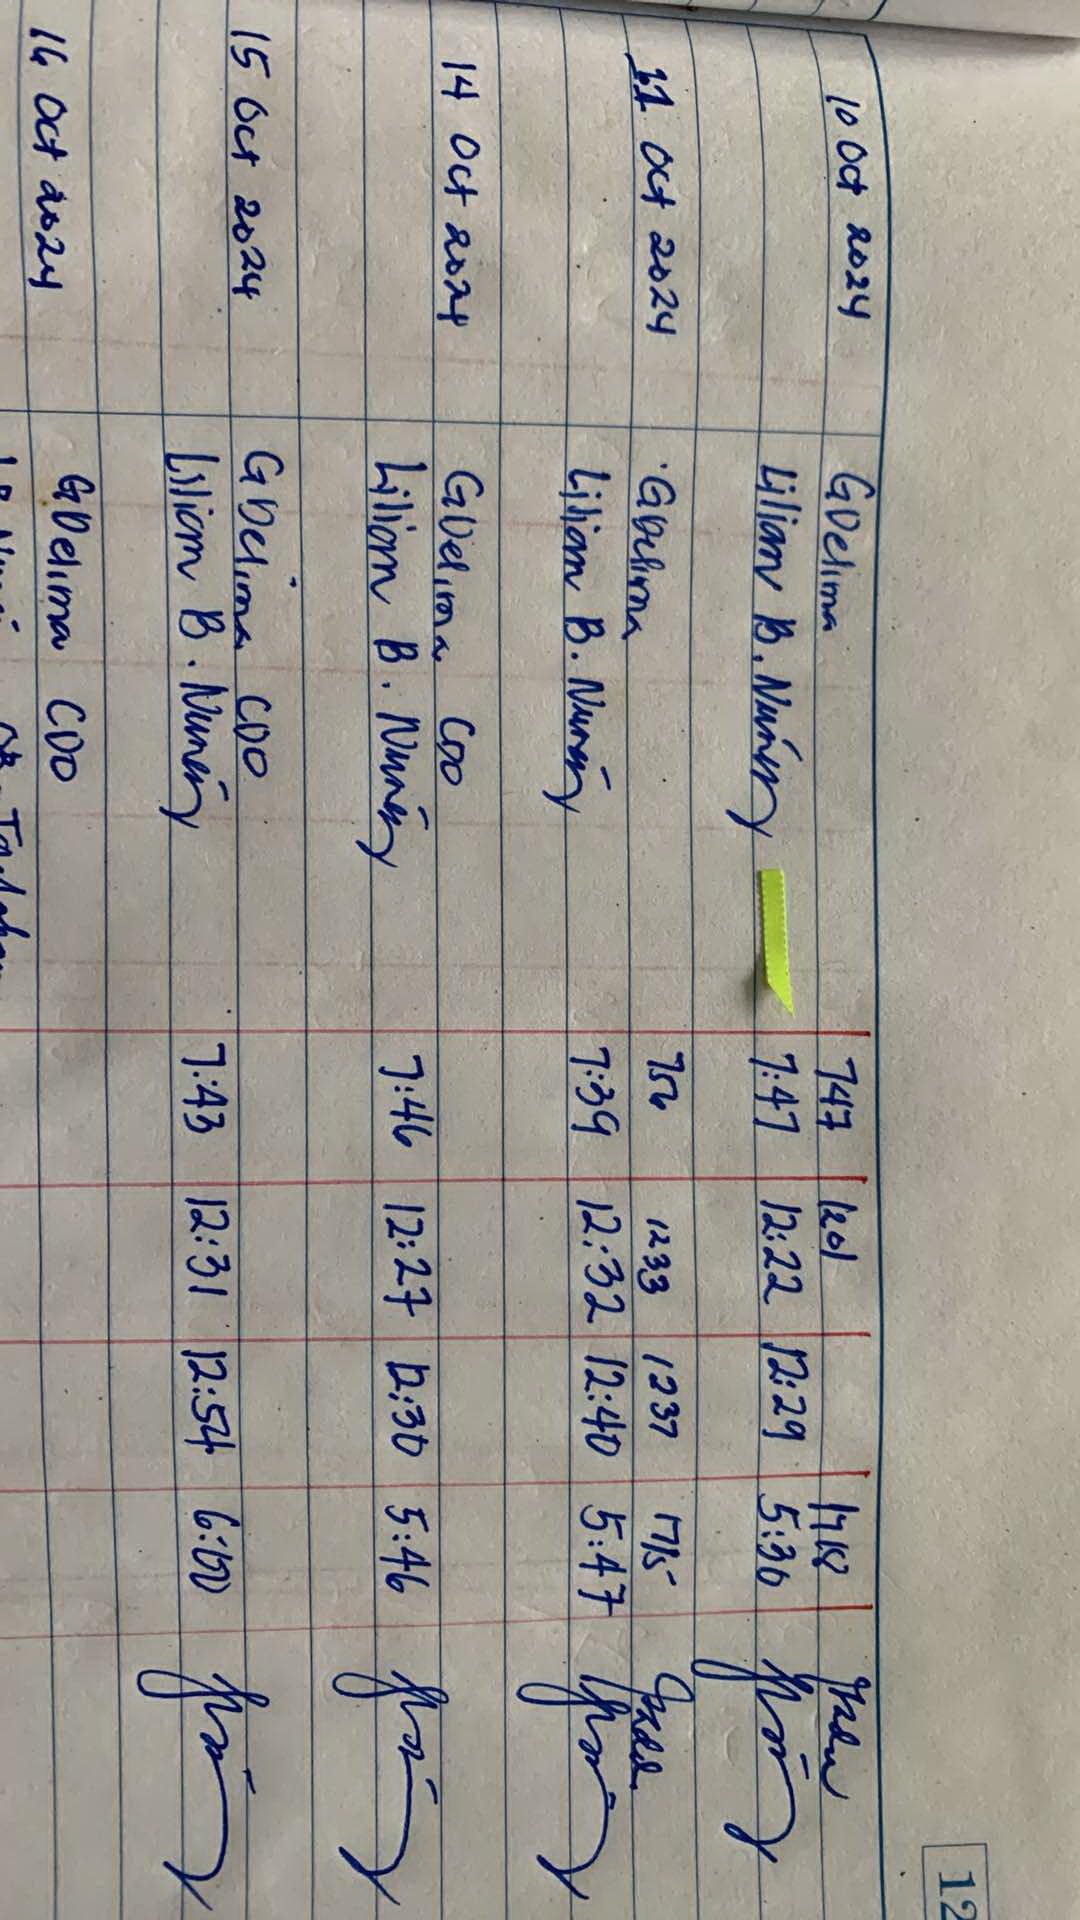 12
10 Oct 2024 GDelima 747 1201 1718
Lilian B. Nuñez 7:47 12:22 12:29 5:30
11 Oct 2024 GDelima 756 1233 1237 1715
Lilian B. Nuñez 7:39 12:32 12:40 5:47
14 Oct 2024 GDelima CDO
Lilian B. Nuñez 7:46 12:27 12:30 5:46
15 Oct 2024 GDelima CDO
Lilian B. Nuñez 7:43 12:31 12:54 6:00
16 Oct 2024 GDelima CDO